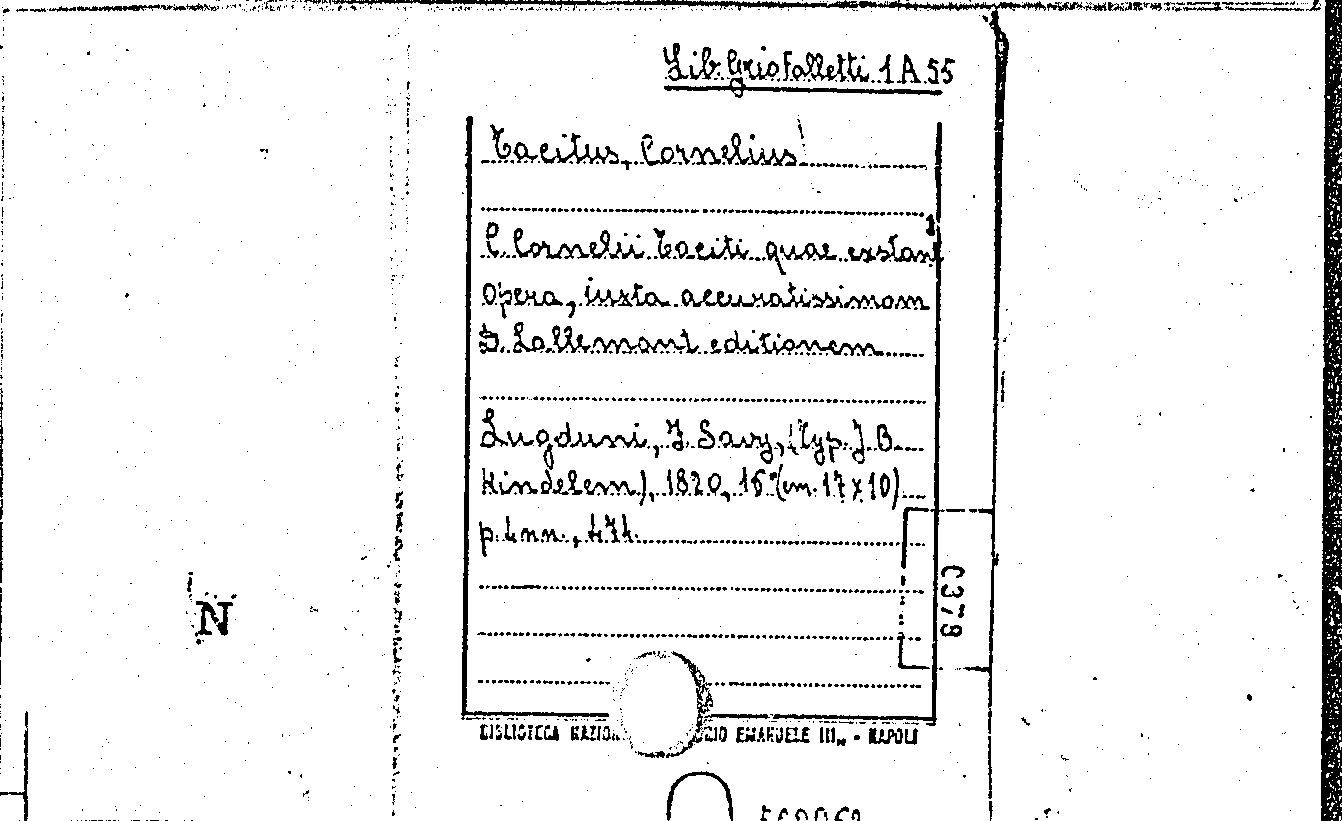 Lib. Griofalletti 1 A 55
Tacitus, Cornelius
C. Cornelii Taciti quae exstant
Opera, iuxta accuratissimam
D. Lallemant editionem
Lugduni, J. Savy, (Typ. J. B.
Kindelem), 1820, 16° (cm. 17 x 10)
p. 4 nn., 474.
C378
N
BIBLIOTECA EMANUELE III„ - NAPOLI